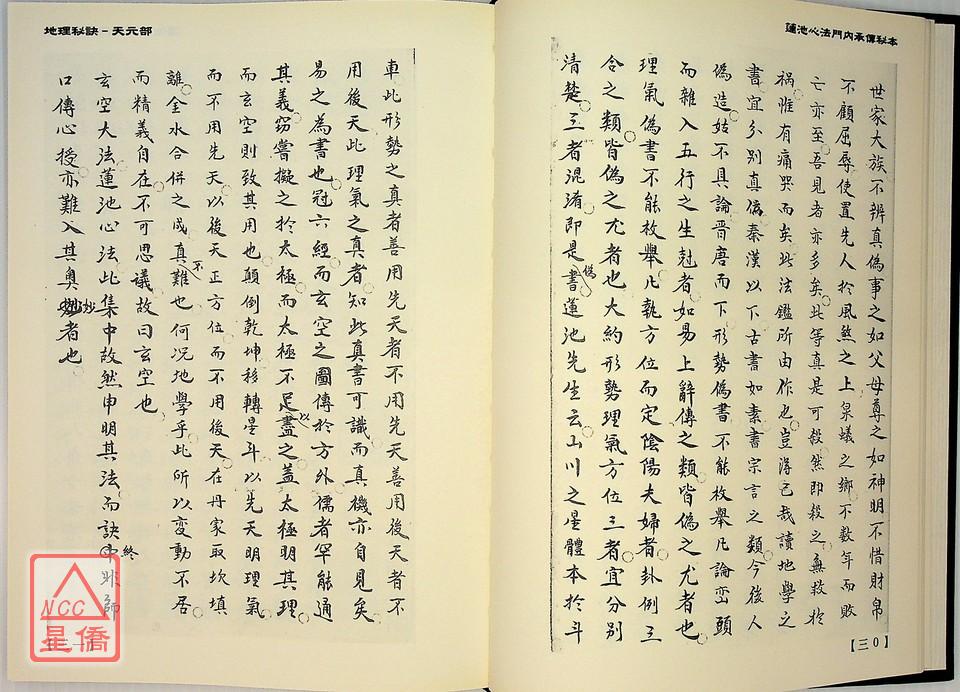 蓮池心法門內承傳秘本
世家大族不辨真偽事之如父母尊之如神明不惜財帛
不顧屈辱使置先人於風煞之上泉蟻之鄉不数年而敗
亡亦至吾見者亦多矣此等真是可殺然即殺之無救於
禍惟有痛哭而矣此法鑑所由作也豈淂已哉讀地學之
書宜分別真偽秦漢以下古書如素書宗言之類今後人
偽造姑不具論晋唐而下形勢偽書不能枚舉凡論巒頭
而雜入五行之生尅者如易上辭傳之類皆偽之尤者也
理氣偽書不能枚舉凡執方位而定陰陽夫婦者卦例三
合之類皆偽之尤者也大約形勢理氣方位三者宜分別
清楚三者混淆即是偽書蓮池先生云山川之星體本於斗
【三0】
地理秘訣－天元部
車此形勢之真者善用先天者不用先天善用後天者不
用後天此理氣之真者知此真書可識而真機亦自見矣
易之為書也冠六經而玄空之圖傳於方外儒者罕能通
其義窃嘗擬之於太極而太極不足以盡之盖太極明其理
而玄空則致其用也顛倒乾坤移轉星斗以先天明理氣
而不用先天以後天正方位而不用後天在丹家取坎填
離金水合併之成真不難也何况地學乎此所以变動不居
而精義自在不可思議故曰玄空也
玄空大法蓮池心法此集中故然申明其法而訣終非師
口傳心授亦難入其奥妙者也
NCC
星僑